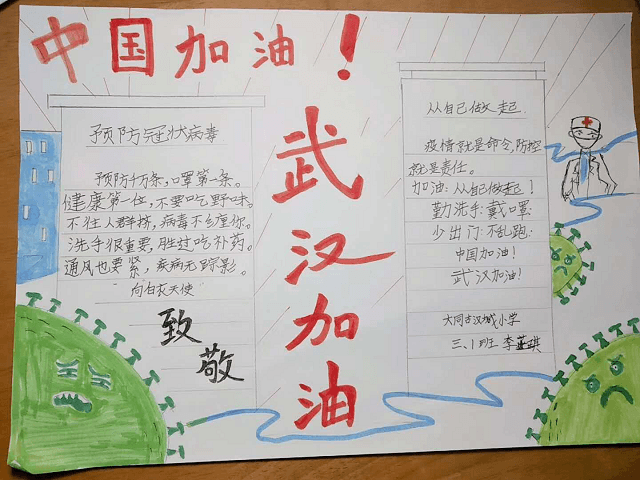 中国加油！
预防冠状病毒
预防千万条，口罩第一条。
健康第一位，不要吃野味。
不往人群挤，病毒不乡理你。
洗手很重要，胜过吃补药。
通风也要紧，疾病无踪影。
"向白衣天使"
致
敬
武
汉
加
油
从自己做起
疫情就是命令，防控
就是责任。
加油：从自己做起！
勤洗手：戴口罩：
少出门：不乱跑：
中国加油！
武汉加油！
大同古汉城小学
三、1班 李 琪